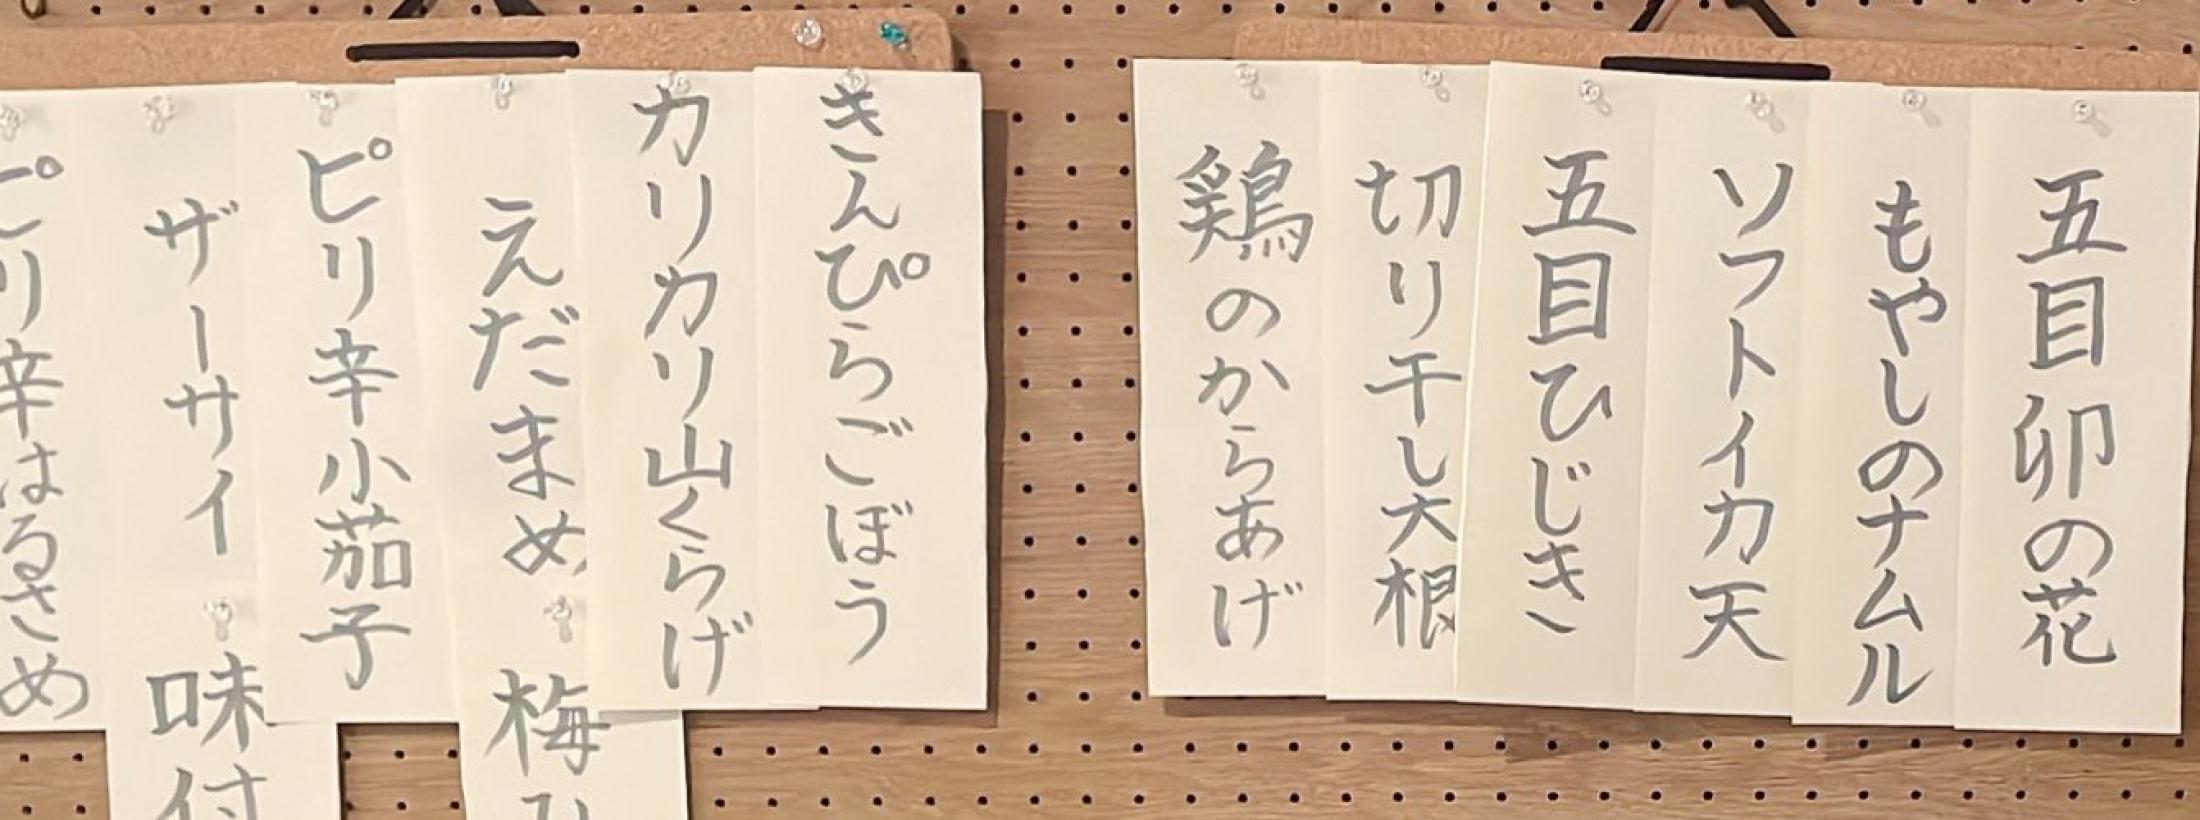 五目卯の花
もやしのナムル
ソフトイカ天
五目ひじき
切り干し大根
鶏のからあげ
きんぴらごぼう
カリカリ山くらげ
えだまめ
ピリ辛小茄子
ザーサイ
ピリ辛はるさめ
梅
味付